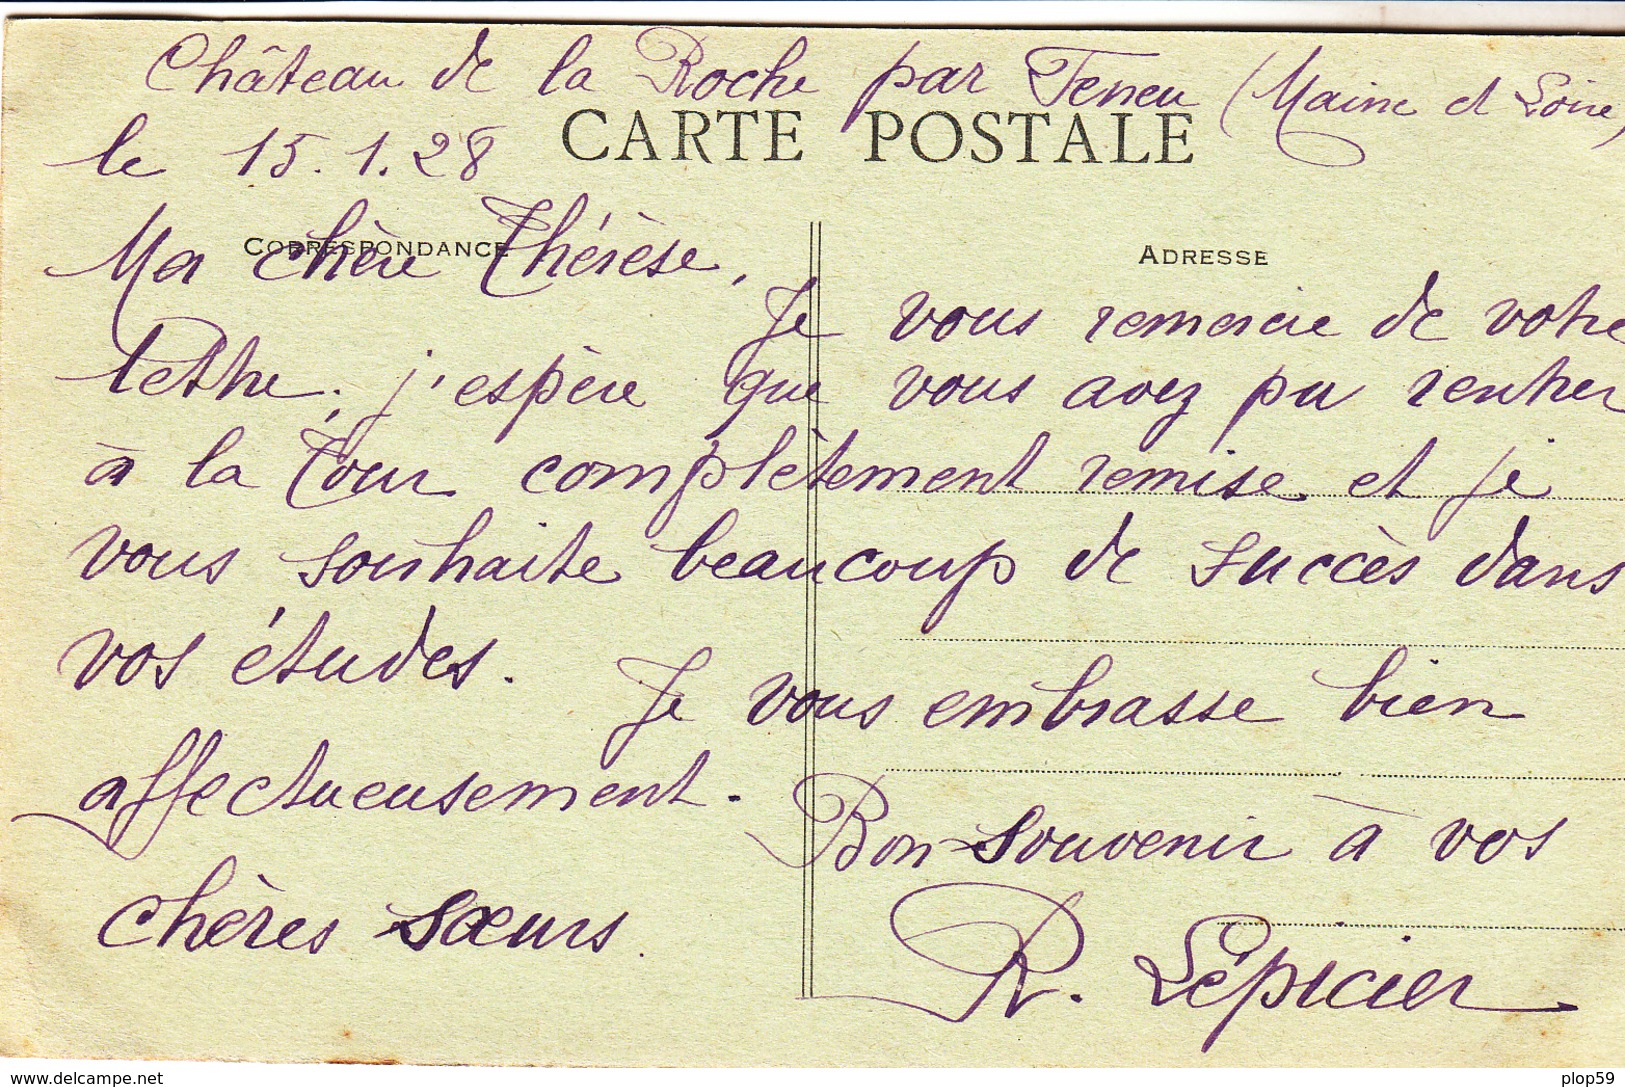 Château de la Roche par Feneu (Maine et Loire)
CARTE POSTALE
le 15.1.28
CORRESPONDANCE
ADRESSE
Ma chère Thérèse,
Je vous remercie de votre
lettre. j'espère que vous avez pu rentrer
à la Tour complètement remise et je
vous souhaite beaucoup de succès dans
vos études. Je vous embrasse bien
affectueusement. Bon souvenir à vos
chères sœurs.
R. Lépicier
www.delcampe.net
plop59